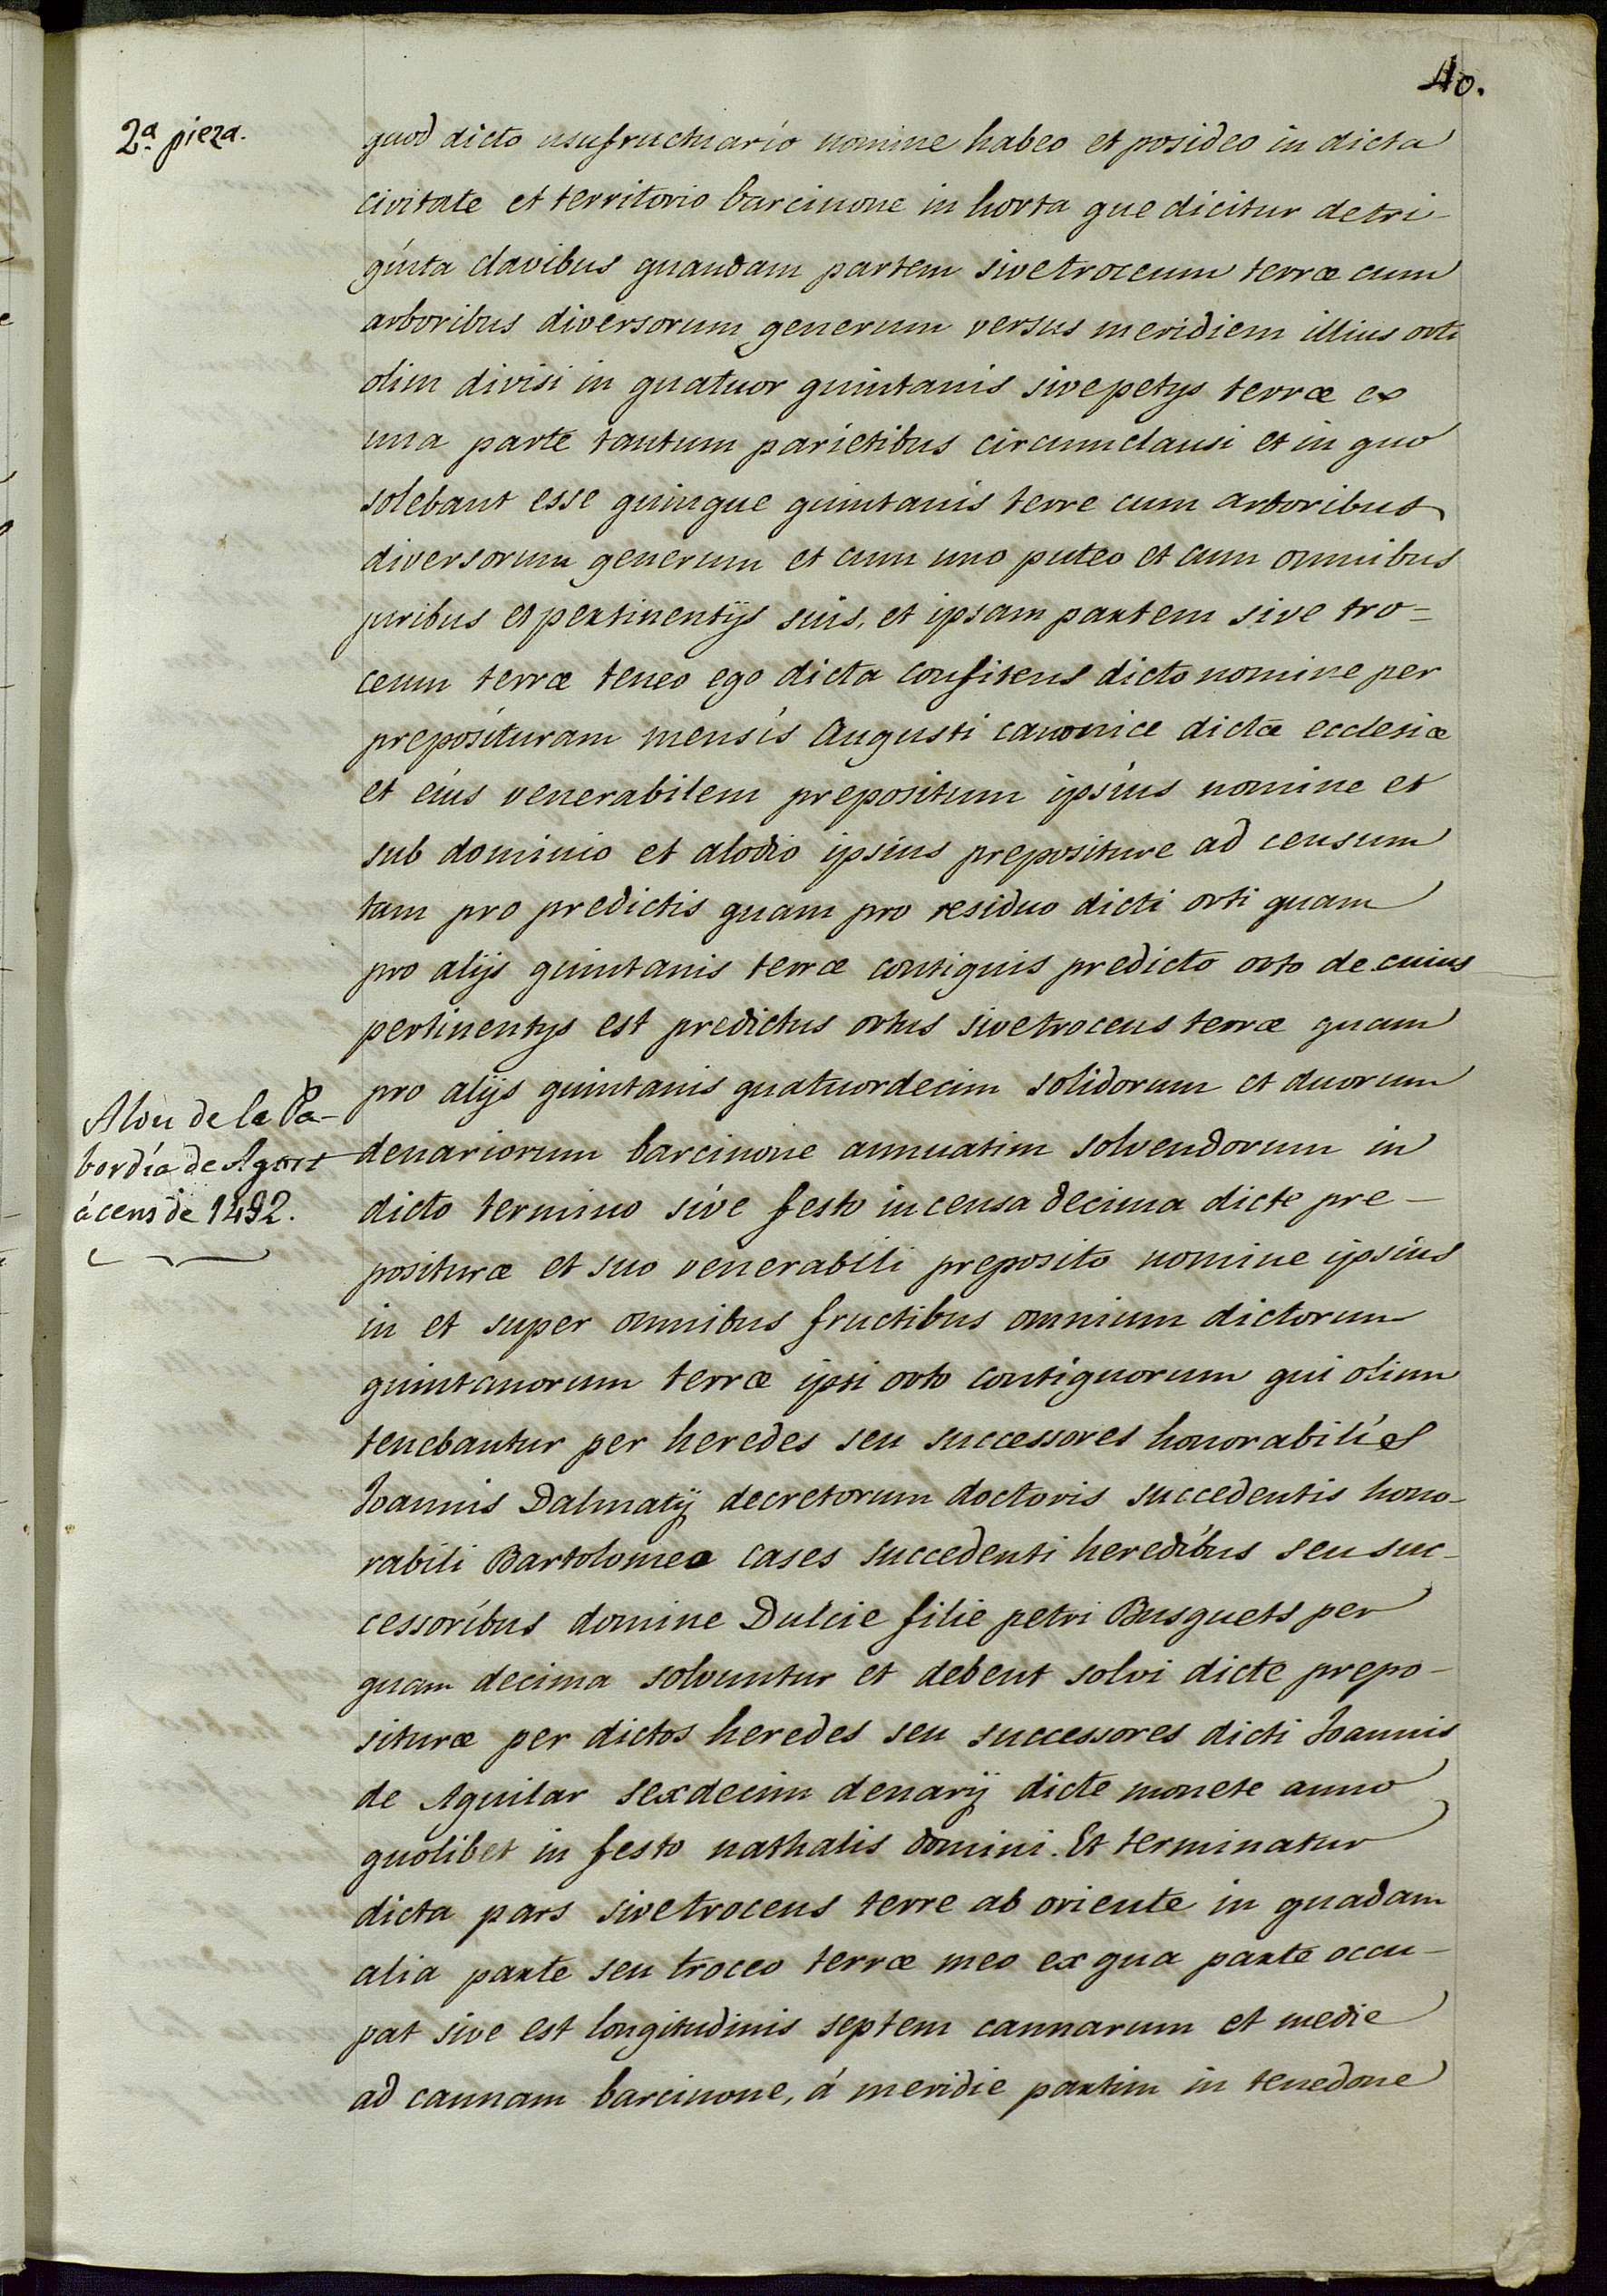 40.
2.ª pieza.
quod dicto usufructuario nomine habeo et posideo in dicta
civitate et territorio barcinone in horta que dicitur de tri-
ginta clavibus quandam partem sive troceum terræ cum
arboribus diversorum generum versus meridiem illius orti
olim divisi in quatuor quintanis sive petys terræ ex
una parte tantum parietibus circumclausi et in quo
solebant esse quinque quintanis terre cum arboribus
diversorum generum et cum uno puteo et cum omnibus
juribus et pertinentijs suis, et ipsam partem sive tro-
ceum terræ teneo ego dicta confitens dicto nomine per
preposituram mensis Augusti canonice dictæ ecclesiæ
et eius venerabilem prepositum ipsius nomine et
sub dominio et alodio ipsius prepositure ad censum
tam pro predictis quam pro residuo dicti orti quam
pro alijs quintanis terræ contiguis predicto orto de cuius
pertinentys est predictus ortus sive troceus terræ quam
pro alijs quintanis quatuordecim solidorum et duorum
denariorum barcinone annuatim solvendorum in
dicto termino sive festo in censa decima dicte pre-
posituræ et suo venerabili preposito nomine ipsius
in et super omnibus fructibus omnium dictorum
quintanorum terræ ipsi orto contiguorum qui olim
tenebantur per heredes seu successores honorabilies
Joannis Dalmatij decretorum doctoris succedentis hono-
rabili Bartolomeo Cases succedenti heredibus seu suc-
cessoribus domine Dulcie filie petri Busquets per
quam decima solvuntur et debent solvi dicte prepo-
situræ per dictos heredes seu successores dicti Joannis
de Aguilar sexdecim denarij dicte monete anno
quolibet in festo nathalis domini. Et terminatur
dicta pars sive troceus terre ab oriente in quadam
alia parte seu troceo terræ meo ex qua parte occu-
pat sive est longitudinis septem cannarum et medie
ad cannam barcinone, á meridie partim in tenedone
Alou de la Pa-
bordía de Agost
á cens de 1492.